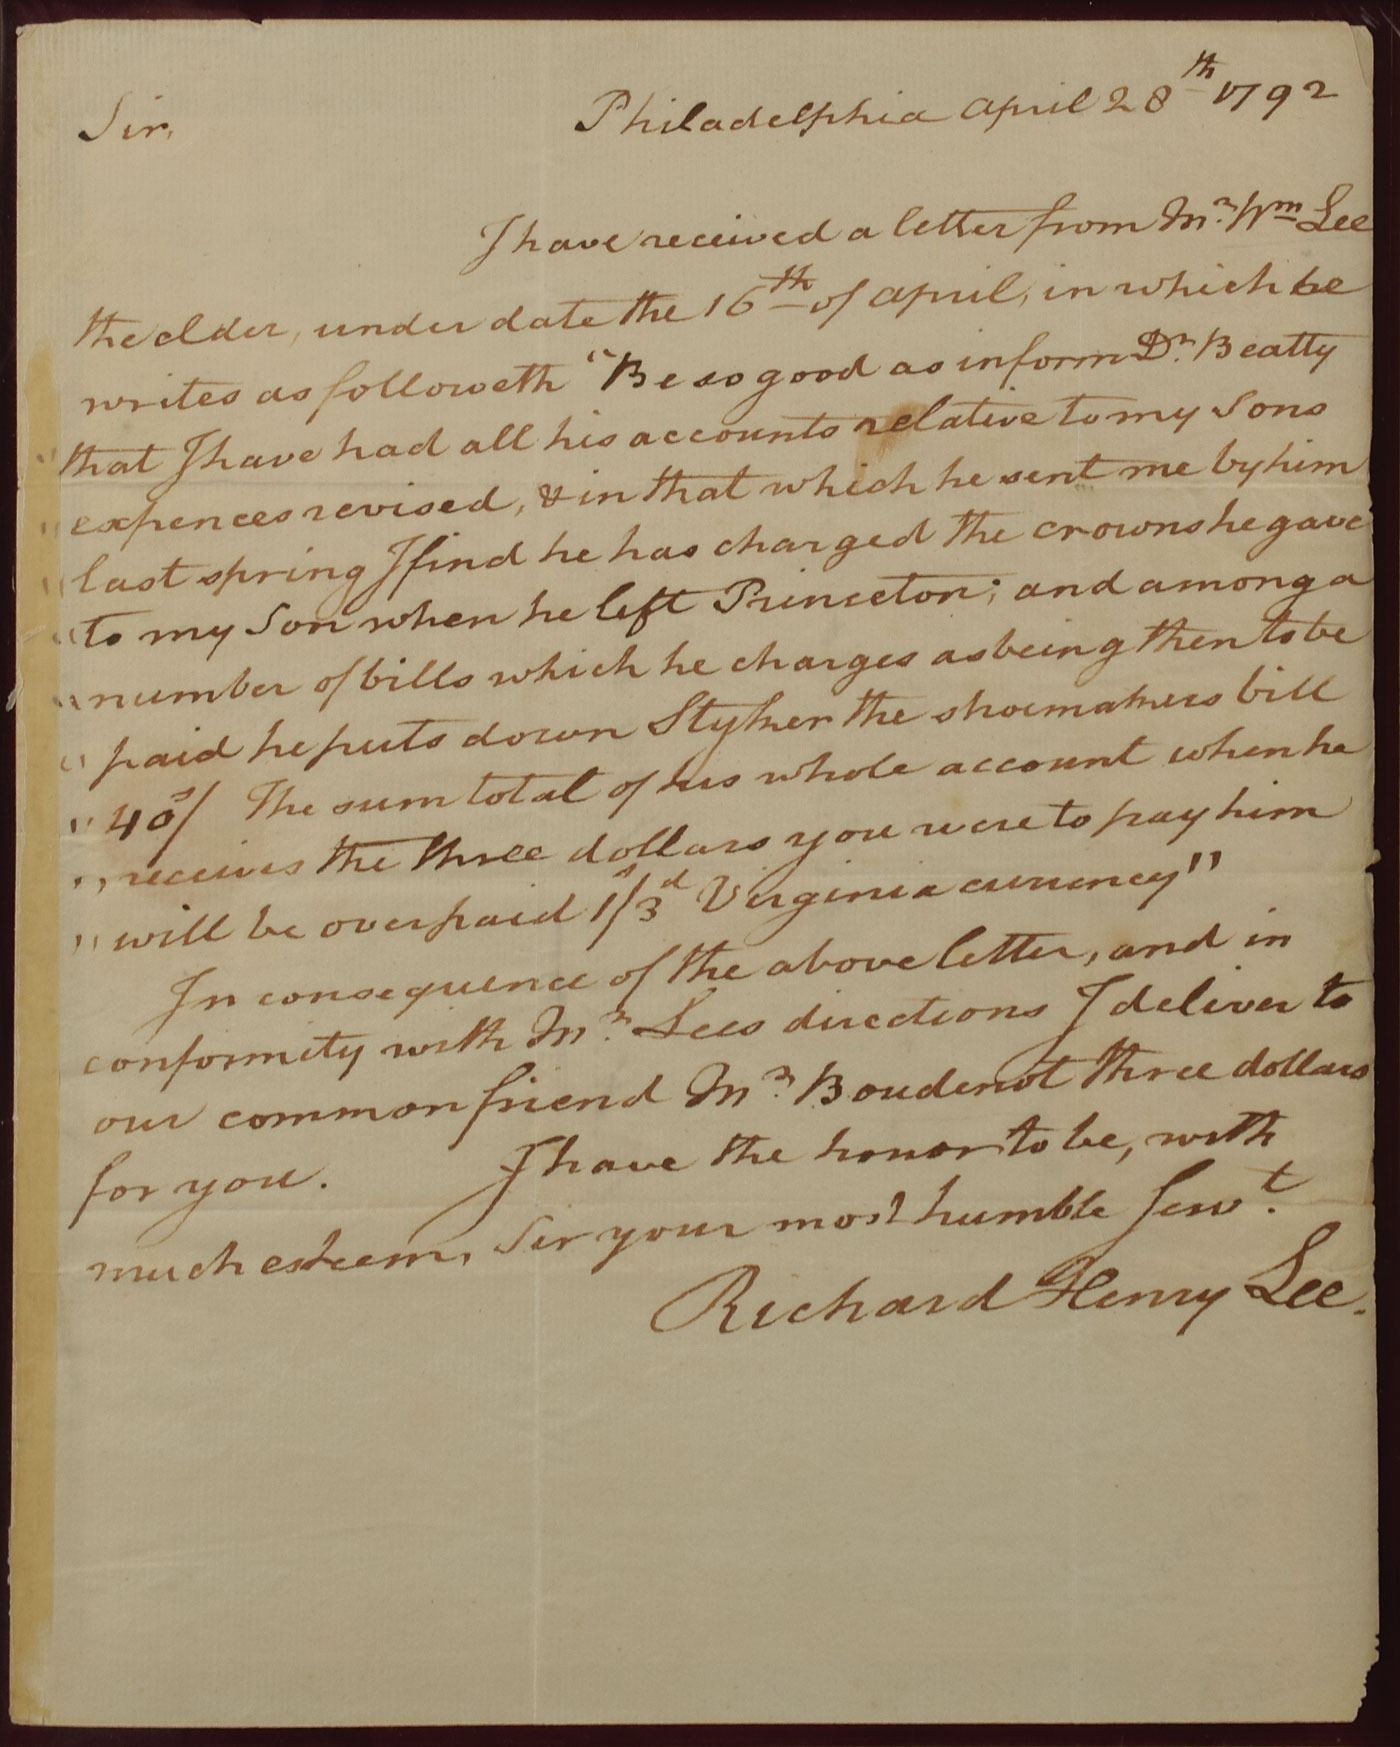 Sir,
Philadelphia april 28th 1792
I have received a letter from Mr. Wm Lee
the elder, under date the 16th of april, in which he
writes as followeth "Be so good as inform Dr. Beatty
" that I have had all his accounts relative to my Sons
" expences revised, & in that which he sent me by him
" last spring I find he has charged the crowns he gave
" to my Son when he left Princeton; and among a
" number of bills which he charges as being then to be
" paid he puts down Styker the shoemakers bill
" 40s/ The sum total of his whole account when he
" receives the three dollars you were to pay him
" will be overpaid 1s/3d Virginia currency"
In consequence of the above letter, and in
conformity with Mr. Lees directions I deliver to
our common friend Mr. Boudenot three dollars
for you. I have the honor to be, with
much esteem, Sir your most humble Servt.
Richard Henry Lee.